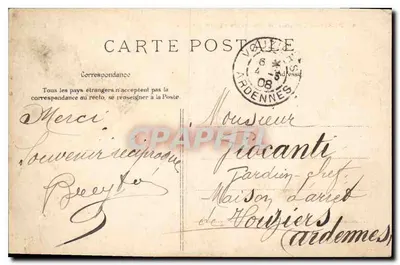 CARTE POSTALE
Correspondance
Tous les pays étrangers n'acceptant pas la
correspondance au recto, se renseigner à la Poste
Merci
Souvenir réciproque
VOU
6
4 - 5
08
ARDENNES
Monsieur
Giocanti
Gardien-chef
Maison d'arrêt
de Vouziers
(Ardennes)
CPAPHIL